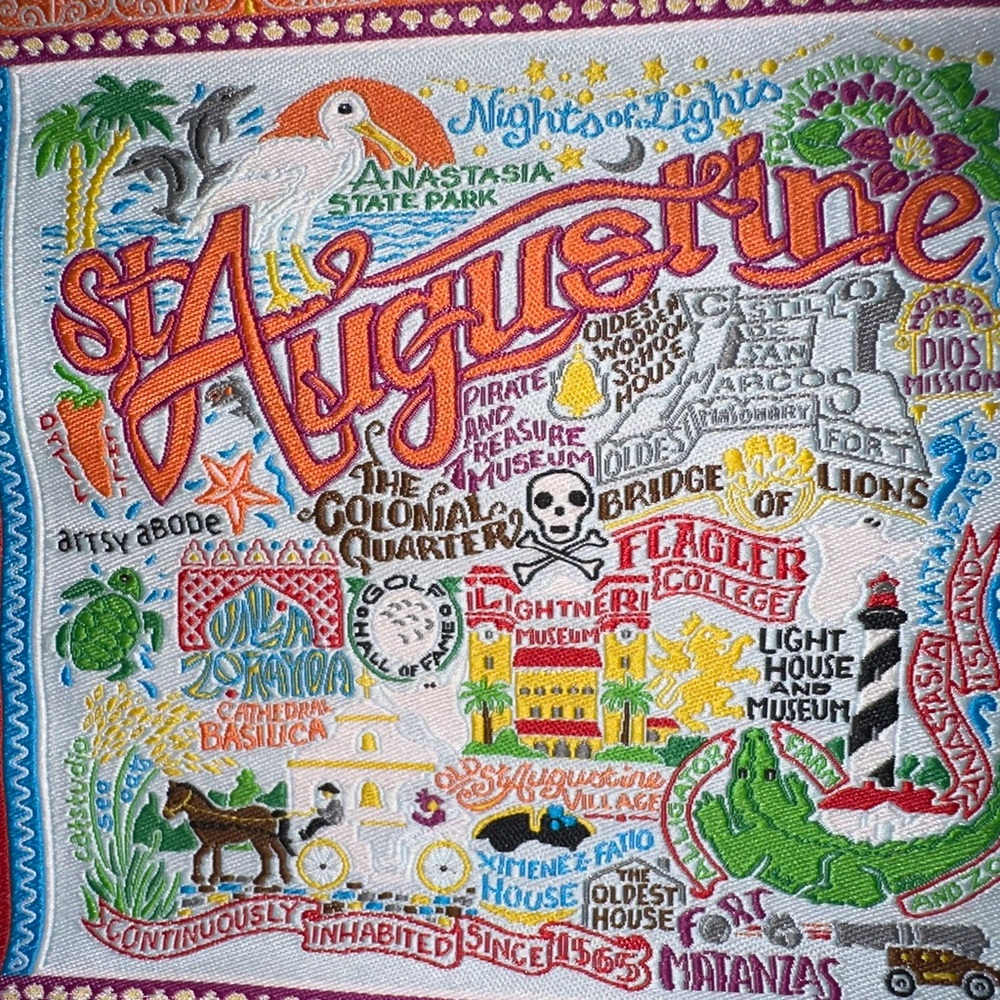 Nights of Lights
FOUNTAIN of YOUTH
ANASTASIA
STATE PARK
St. Augustine
OLDEST
WOODEN
SCHOOL
HOUSE
CASTILLO
DE
SAN
MARCOS
OLDEST MASONARY FORT
NOMBRE
DE
DIOS
MISSION
PIRATE
AND
TREASURE
MUSEUM
DATIL
CHILI
THE
COLONIAL
QUARTER
BRIDGE
OF
LIONS
MATANZAS BAY
artsy aBODe
FLAGLER
COLLEGE
GOLF
HALL OF FAME
LIGHTNER
MUSEUM
VILLA
ZORAYDA
LIGHT
HOUSE
AND
MUSEUM
ANASTASIA
ISLAND
CATHEDRAL
BASILICA
catstudio
sea
oats
OLD St Augustine
VILLAGE
ALLIGATOR
FARM
AND ZO
XIMENEZ-FATIO
HOUSE
THE
OLDEST
HOUSE
CONTINUOUSLY
INHABITED
SINCE 1565
FORT
MATANZAS